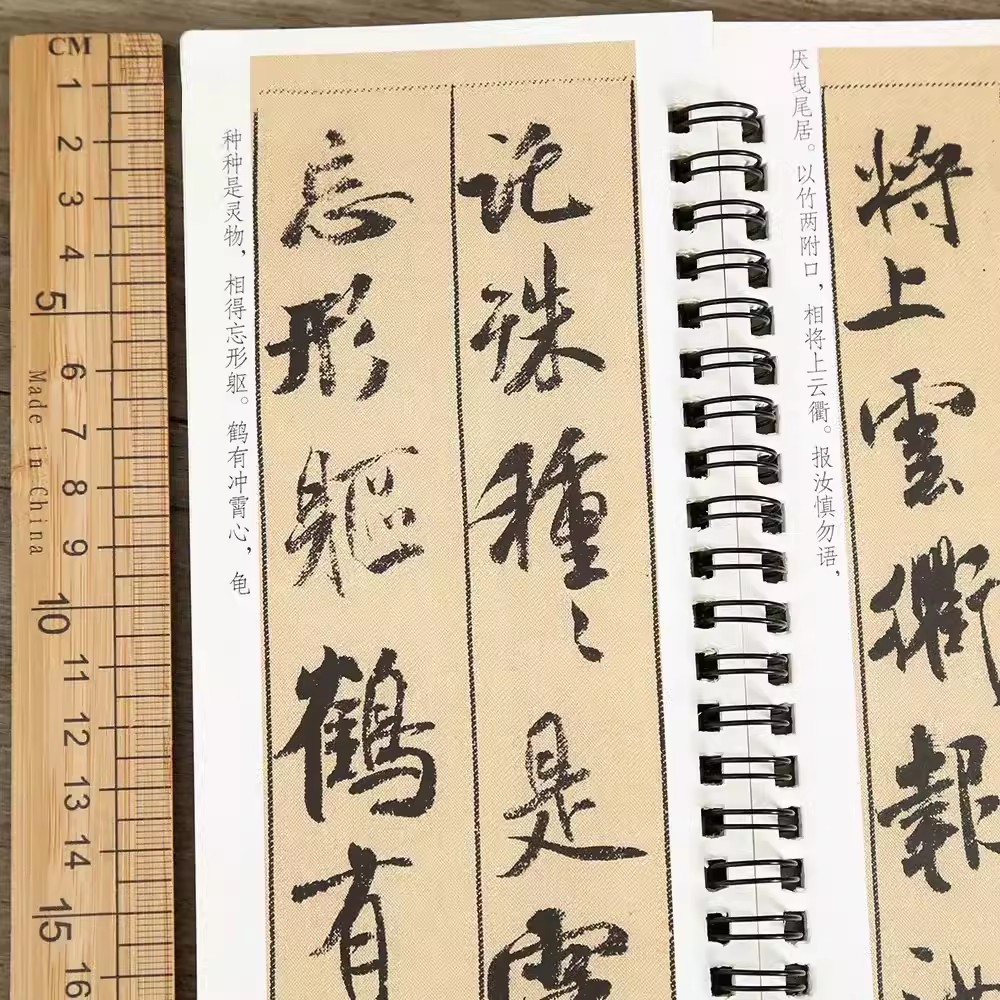 CM
1
2
3
4
5
6
7
8
9
10
11
12
13
14
15
16
Made in China
託殊種〻是靈
忘形軀鶴有
种种是灵物，相得忘形躯。鹤有冲霄心，龟
將上雲衢報汝
厌曳尾居。以竹两附口，相将上云衢。报汝慎勿语，